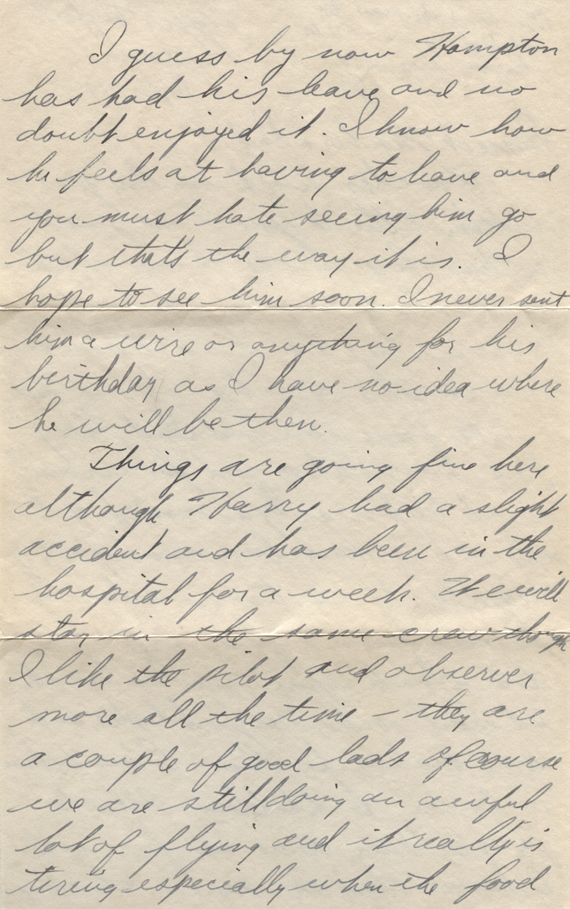 I guess by now Hampton
has had his leave and no
doubt enjoyed it. I know how
he feels at having to leave and
you must hate seeing him go
but that's the way it is. I
hope to see him soon. I never sent
him a wire or anything for his
birthday as I have no idea where
he will be then.
Things are going fine here
although Harry had a slight
accident and has been in the
hospital for a week. He will
stay in the same crew though
I like the pilot and observer
more all the time - they are
a couple of good lads of course
we are still doing an awful
lot of flying and it really is
tiring especially when the food